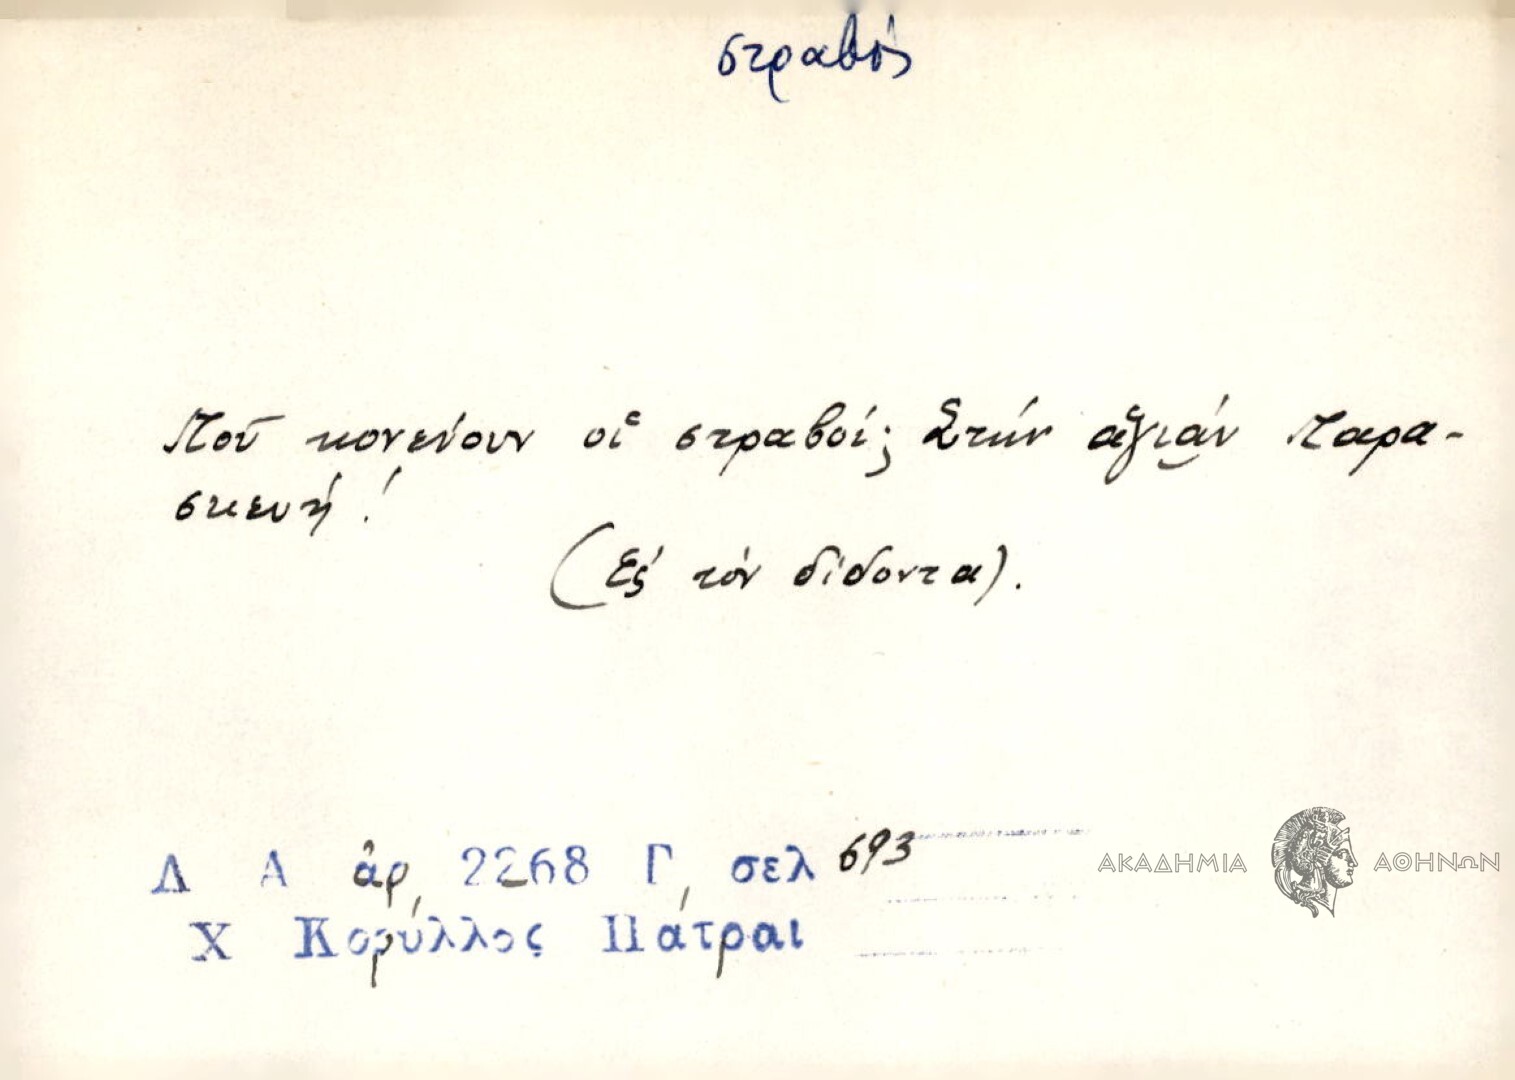 στραβός
Ποῦ κονεύουν οἱ στραβοί; Στήν ἁγιάν Παρα-
σκευή!
(Εἰς τόν δίδοντα).
Λ Α ἀρ, 2268 Γ, σελ 693
Χ Κορύλλος Πάτραι
ΑΚΑΔΗΜΙΑ ΑΘΗΝΩΝ